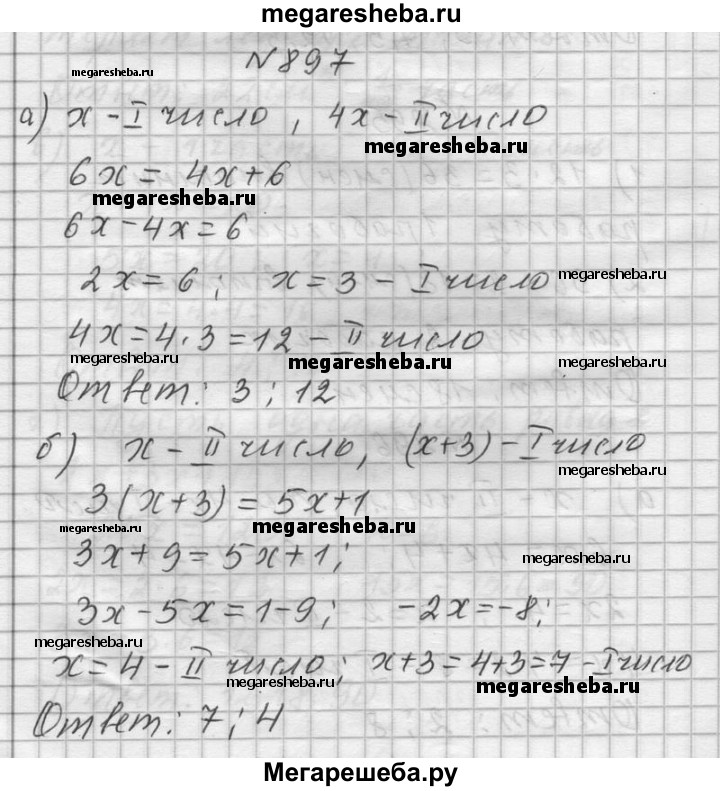 megaresheba.ru
№897
megaresheba.ru
а) x - I число, 4x - II число
megaresheba.ru
6x = 4x+6
megaresheba.ru
6x-4x=6
2x=6; x=3 - I число
megaresheba.ru
4x=4·3=12 - II число
megaresheba.ru
megaresheba.ru
megaresheba.ru
Ответ: 3; 12
б) x - II число, (x+3) - I число
megaresheba.ru
3(x+3) = 5x+1
megaresheba.ru
megaresheba.ru
3x+9=5x+1;
megaresheba.ru
3x-5x=1-9; -2x=-8;
megaresheba.ru
x=4 - II число; x+3=4+3=7 - I число
megaresheba.ru
megaresheba.ru
Ответ: 7; 4
Мегарешеба.ру